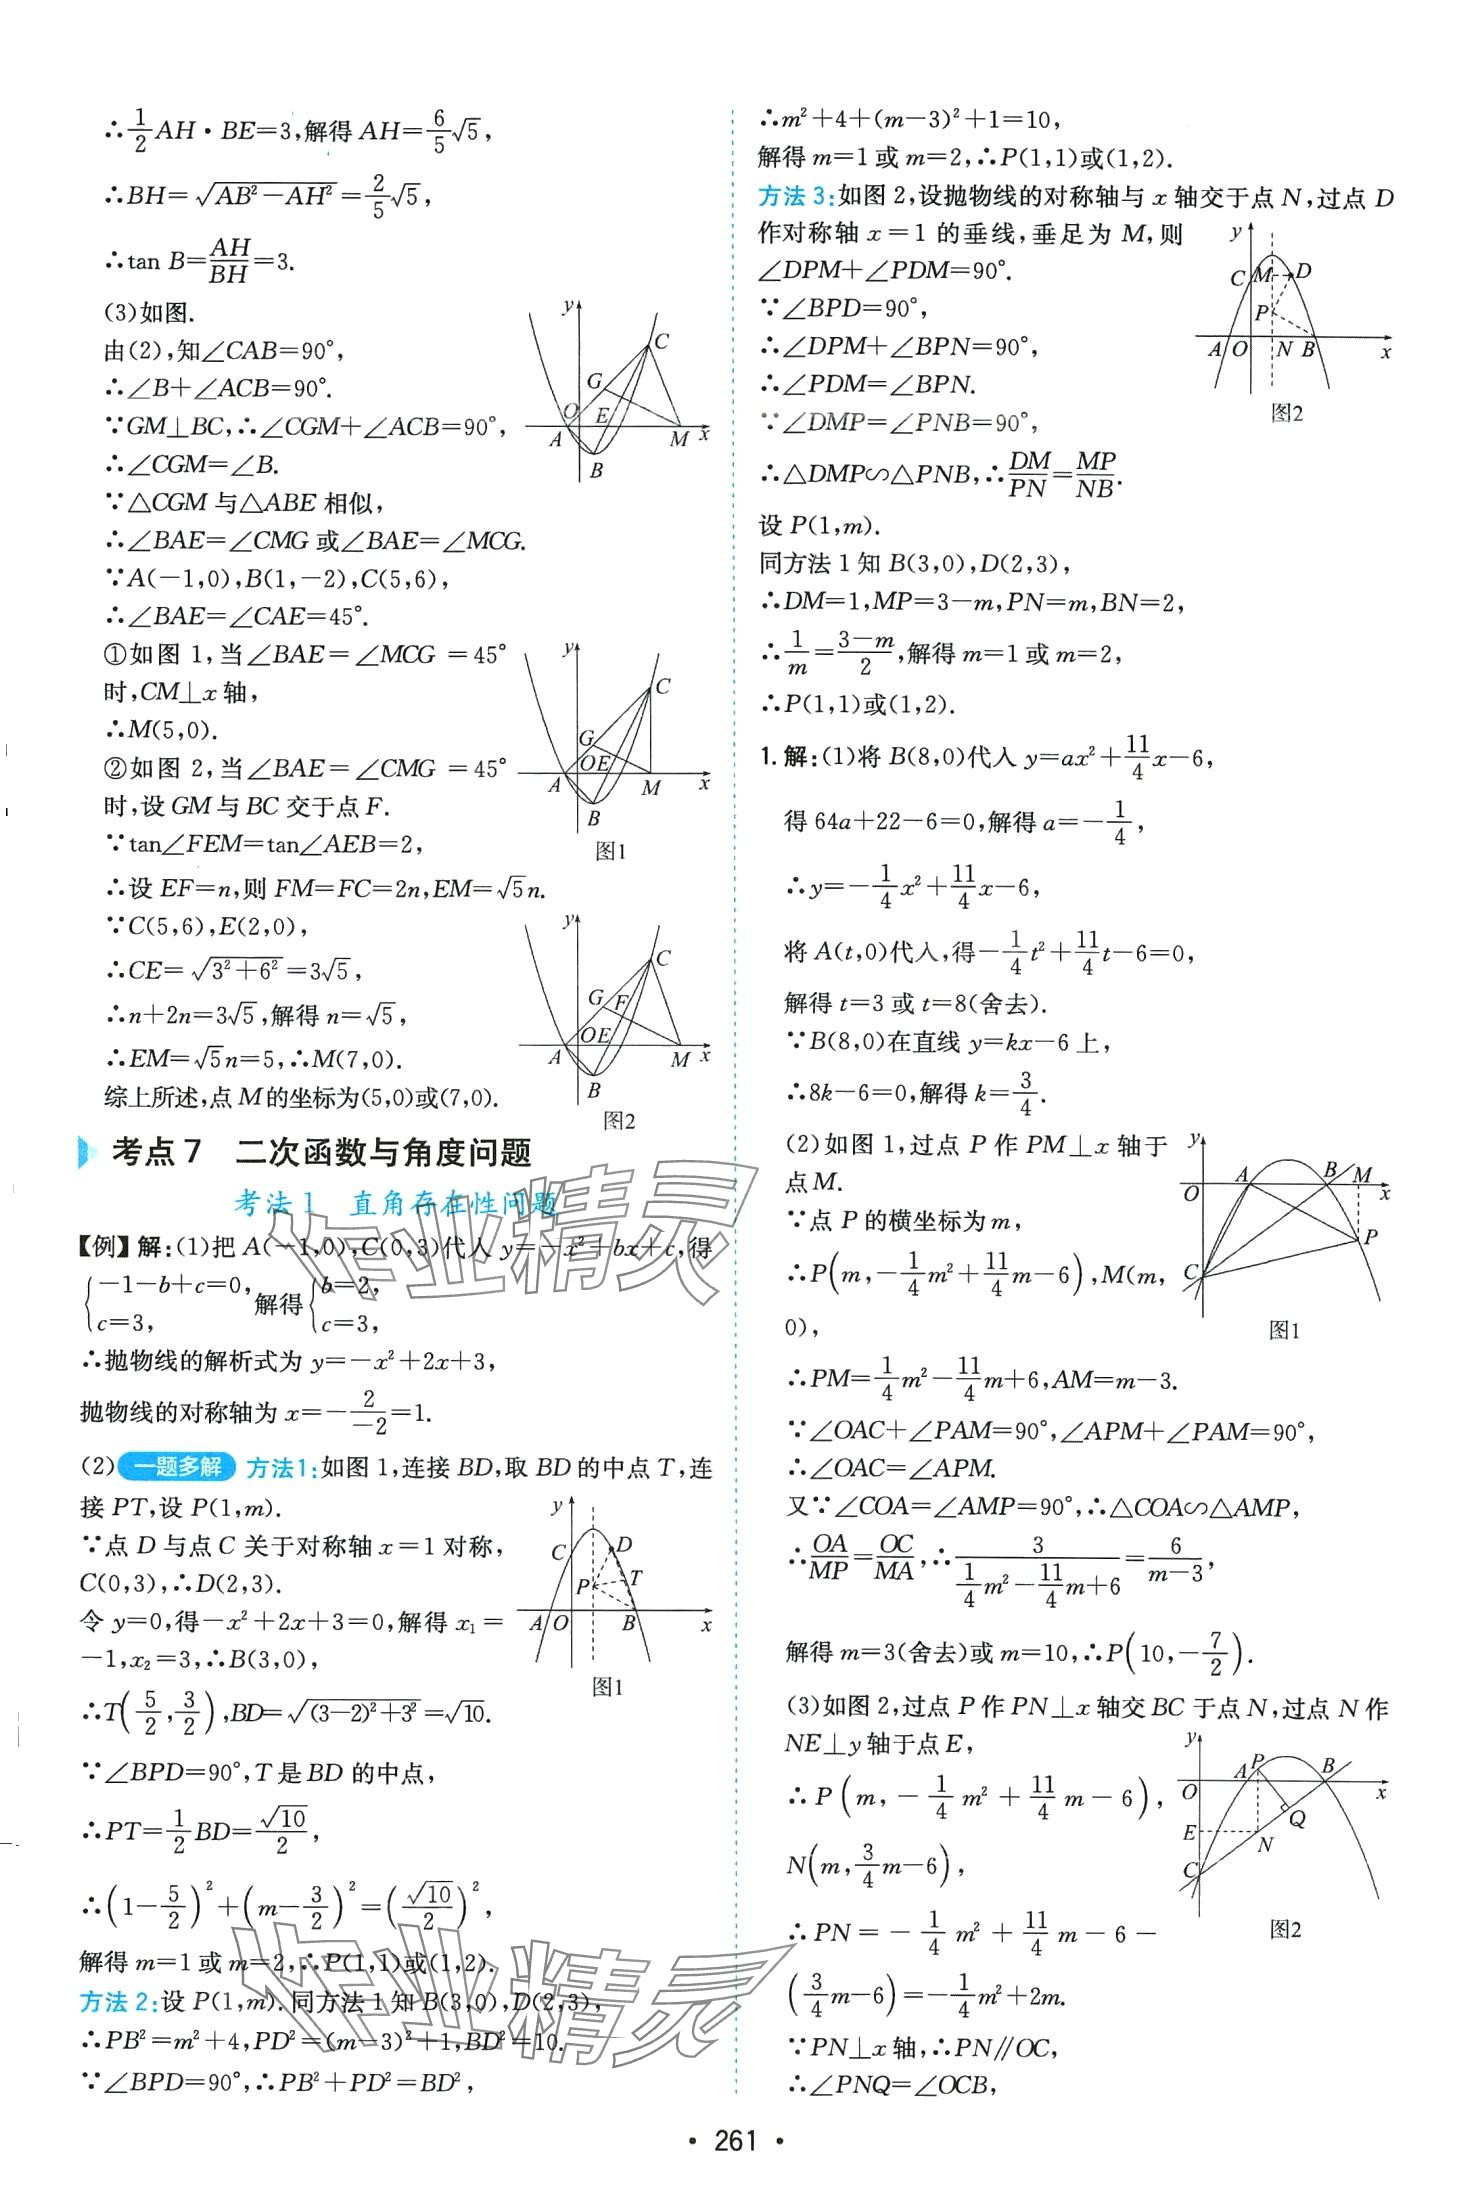 ∴$\frac{1}{2}$AH·BE=3,解得 AH=$\frac{6}{5}\sqrt{5}$,
∴BH=$\sqrt{AB^2-AH^2}$=$\frac{2}{5}\sqrt{5}$,
∴tan B=$\frac{AH}{BH}$=3.
(3)如图.
由(2),知∠CAB=90°,
∴∠B+∠ACB=90°.
∵GM⊥BC,∴∠CGM+∠ACB=90°,
∴∠CGM=∠B.
∵△CGM 与△ABE 相似,
∴∠BAE=∠CMG 或∠BAE=∠MCG.
∵A(−1,0),B(1,−2),C(5,6),
∴∠BAE=∠CAE=45°.
①如图 1,当∠BAE=∠MCG =45°
时,CM⊥x 轴,
∴M(5,0).
②如图 2,当∠BAE=∠CMG =45°
时,设 GM 与 BC 交于点 F.
∵tan∠FEM=tan∠AEB=2,
∴设 EF=n,则 FM=FC=2n,EM=$\sqrt{5}$n.
∵C(5,6),E(2,0),
∴CE=$\sqrt{3^2+6^2}$=3$\sqrt{5}$,
∴n+2n=3$\sqrt{5}$,解得 n=$\sqrt{5}$,
∴EM=$\sqrt{5}$n=5,∴M(7,0).
综上所述,点 M 的坐标为(5,0)或(7,0).
y C G O E A M x B
y C G OE A M x B
图1
y C G F OE A M x B
图2
考点 7 二次函数与角度问题
考法 1 直角存在性问题
【例】解:(1)把 A(−1,0),C(0,3)代入 y=−x²+bx+c,得
$\begin{cases}-1-b+c=0,\\c=3,\end{cases}$解得$\begin{cases}b=2,\\c=3,\end{cases}$
∴抛物线的解析式为 y=−x²+2x+3,
抛物线的对称轴为 x=−$\frac{2}{-2}$=1.
(2) 一题多解 方法1:如图 1,连接 BD,取 BD 的中点 T,连
接 PT,设 P(1,m).
∵点 D 与点 C 关于对称轴 x=1 对称,
C(0,3),∴D(2,3).
令 y=0,得−x²+2x+3=0,解得 x₁=
−1,x₂=3,∴B(3,0),
∴T($\frac{5}{2}$,$\frac{3}{2}$),BD=$\sqrt{(3-2)^2+3^2}$=$\sqrt{10}$.
∵∠BPD=90°,T 是 BD 的中点,
∴PT=$\frac{1}{2}$BD=$\frac{\sqrt{10}}{2}$,
∴$(1-\frac{5}{2})^2+(m-\frac{3}{2})^2=(\frac{\sqrt{10}}{2})^2$,
解得 m=1 或 m=2,∴P(1,1)或(1,2).
y C D P T A O B x
图1
方法 2:设 P(1,m).同方法 1 知 B(3,0),D(2,3),
∴PB²=m²+4,PD²=(m−3)²+1,BD²=10.
∵∠BPD=90°,∴PB²+PD²=BD²,
∴m²+4+(m−3)²+1=10,
解得 m=1 或 m=2,∴P(1,1)或(1,2).
方法 3:如图 2,设抛物线的对称轴与 x 轴交于点 N,过点 D
作对称轴 x=1 的垂线,垂足为 M,则
∠DPM+∠PDM=90°.
∵∠BPD=90°,
∴∠DPM+∠BPN=90°,
∴∠PDM=∠BPN.
∵∠DMP=∠PNB=90°,
∴△DMP∽△PNB,∴$\frac{DM}{PN}$=$\frac{MP}{NB}$.
设 P(1,m).
同方法 1 知 B(3,0),D(2,3),
∴DM=1,MP=3−m,PN=m,BN=2,
∴$\frac{1}{m}$=$\frac{3-m}{2}$,解得 m=1 或 m=2,
∴P(1,1)或(1,2).
y C M D P A O N B x
图2
1.解:(1)将 B(8,0)代入 y=ax²+$\frac{11}{4}$x−6,
得 64a+22−6=0,解得 a=−$\frac{1}{4}$,
∴y=−$\frac{1}{4}$x²+$\frac{11}{4}$x−6,
将 A(t,0)代入,得−$\frac{1}{4}$t²+$\frac{11}{4}$t−6=0,
解得 t=3 或 t=8(舍去).
∵B(8,0)在直线 y=kx−6 上,
∴8k−6=0,解得 k=$\frac{3}{4}$.
(2)如图 1,过点 P 作 PM⊥x 轴于
点 M.
∵点 P 的横坐标为 m,
∴P(m,−$\frac{1}{4}$m²+$\frac{11}{4}$m−6),M(m,
0),
∴PM=$\frac{1}{4}$m²−$\frac{11}{4}$m+6,AM=m−3.
∵∠OAC+∠PAM=90°,∠APM+∠PAM=90°,
∴∠OAC=∠APM.
又∵∠COA=∠AMP=90°,∴△COA∽△AMP,
∴$\frac{OA}{MP}$=$\frac{OC}{MA}$,∴$\frac{3}{\frac{1}{4}m^2-\frac{11}{4}m+6}$=$\frac{6}{m-3}$,
解得 m=3(舍去)或 m=10,∴P(10,−$\frac{7}{2}$).
y A B M O x P C
图1
(3)如图 2,过点 P 作 PN⊥x 轴交 BC 于点 N,过点 N 作
NE⊥y 轴于点 E,
∴P(m,−$\frac{1}{4}$m²+$\frac{11}{4}$m−6),
N(m,$\frac{3}{4}$m−6),
∴PN=−$\frac{1}{4}$m²+$\frac{11}{4}$m−6−
($\frac{3}{4}$m−6)=−$\frac{1}{4}$m²+2m.
∵PN⊥x 轴,∴PN∥OC,
∴∠PNQ=∠OCB,
y A P B O x Q E N C
图2
作业精灵
作业精灵
· 261 ·